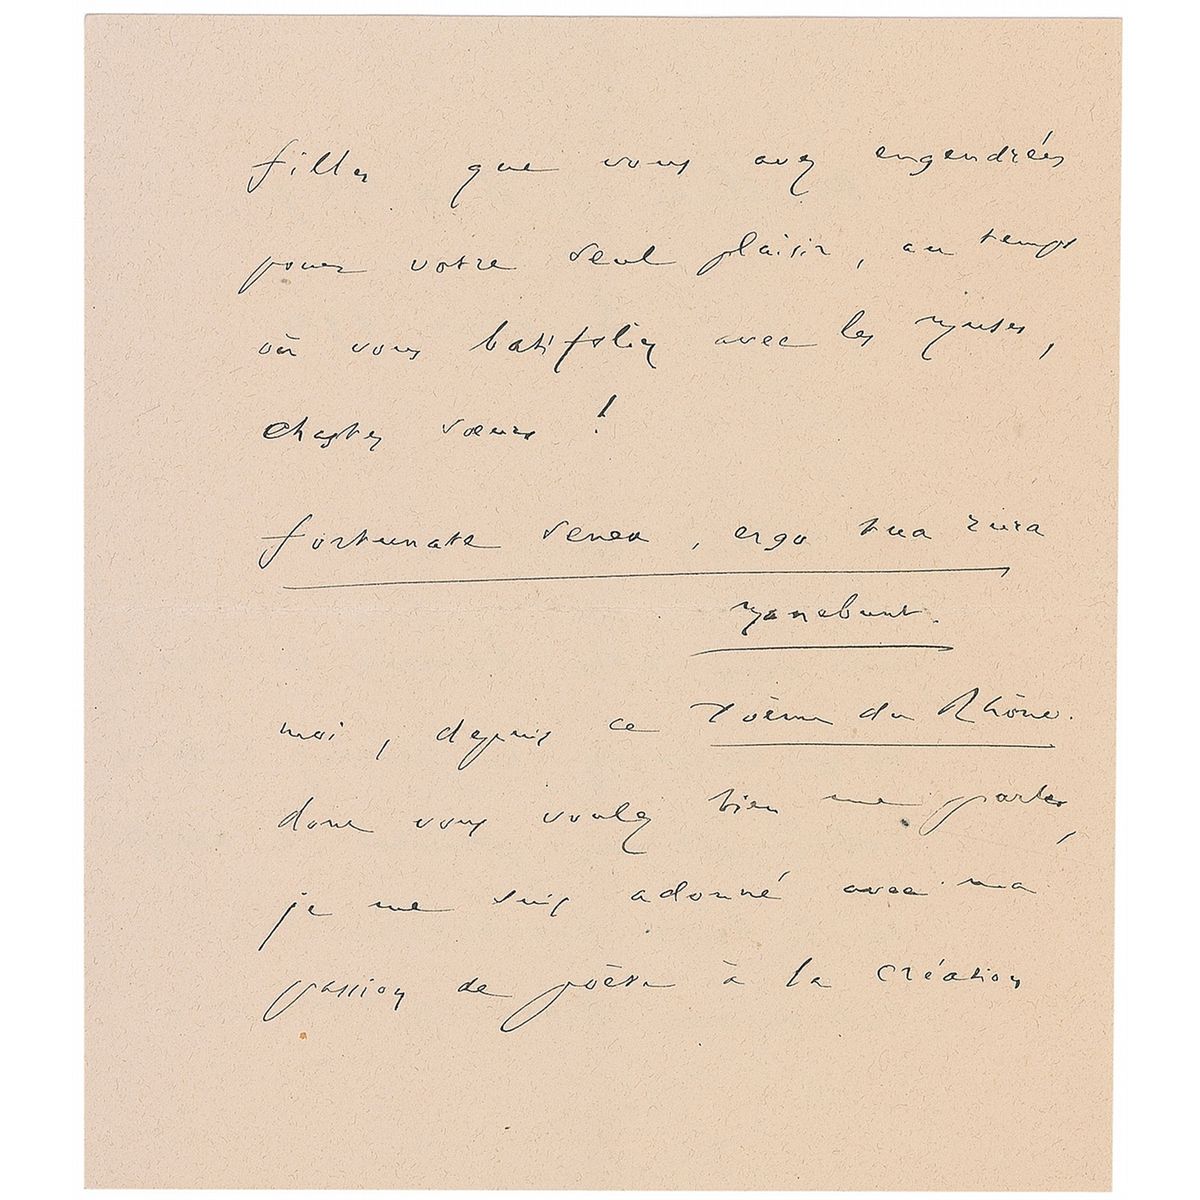 filles que vous avez engendrées
pour votre seul plaisir, au temps
où vous batifoliez avec les muses,
chastes sœurs !
fortunate senex, ergo tua rura
manebunt.
moi, depuis ce Poème du Rhône.
dont vous voulez bien me parler,
je me suis adonné avec ma
passion de poète à la création